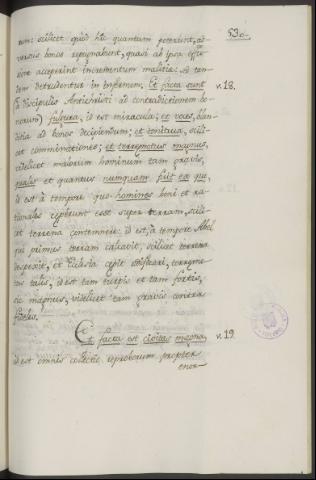 530.
rum: scilicet quòd hîc quantum poterunt, ad-
versùs bonos repugnabunt, quasi ab ipsa effu-
sione acceperint incrementum malitiæ: sed tan-
dem detrudentur in infernum. Et facta sunt v.18.
(à Discipulis Antichristi ad contradictionem bo-
norum) fulgura, id est miracula; et voces, blan-
ditiæ ad bonos decipiendum; et tonitrua, scili-
cet comminationes; et terræmotus magnus,
videlicet malorum hominum tam gravis,
qualis et quantus numquam fuit ex quo,
id est à tempore quo homines boni et ra-
tionales cœperunt esse super terram, scili-
cet terrena contemnere: id est, à tempore Abel
qui primus terram calcavit, scilicet terrena
despexit, et Ecclesia cœpit ædificari, terræmo-
tus talis, id est tam turpis et tam fortis,
sic magnus, videlicet tam gravis contra
fideles.
Et facta est civitas magna, v.19
id est omnis collectio reproborum propter
enor-